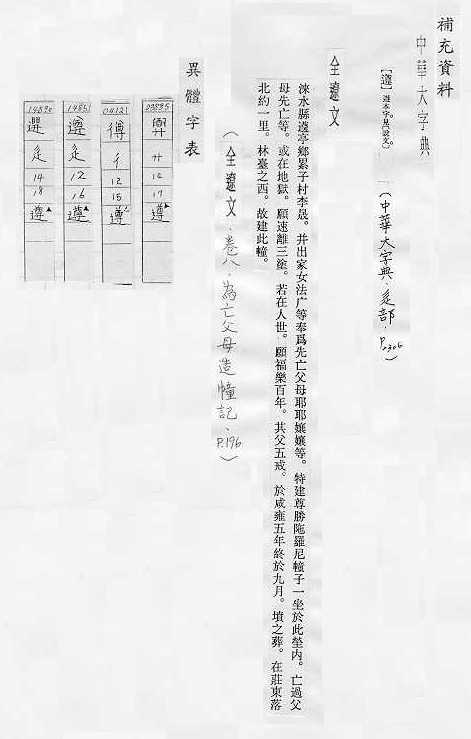 補充資料
中華大字典
【遵】遵本字。見《說文》。
（中華大字典．辵部．P.2306）
全遼文
淶水縣遵亭鄉累子村李晟。并出家女法广等奉爲先亡父母耶耶孃孃等。特建尊勝陁羅尼幢子一坐於此塋內。亡過父
母先亡等。或在地獄。願速離三塗。若在人世。願福樂百年。其父五戒。於咸雍五年終於九月。墳之葬。在莊東落
北約一里。林臺之西。故建此幢。
（全遼文．卷八．為亡父母造幢記．P.196）
異體字表
辵
14
18
遵
遵
辵
12
16
遵
彳
12
15
遵
廾
遵